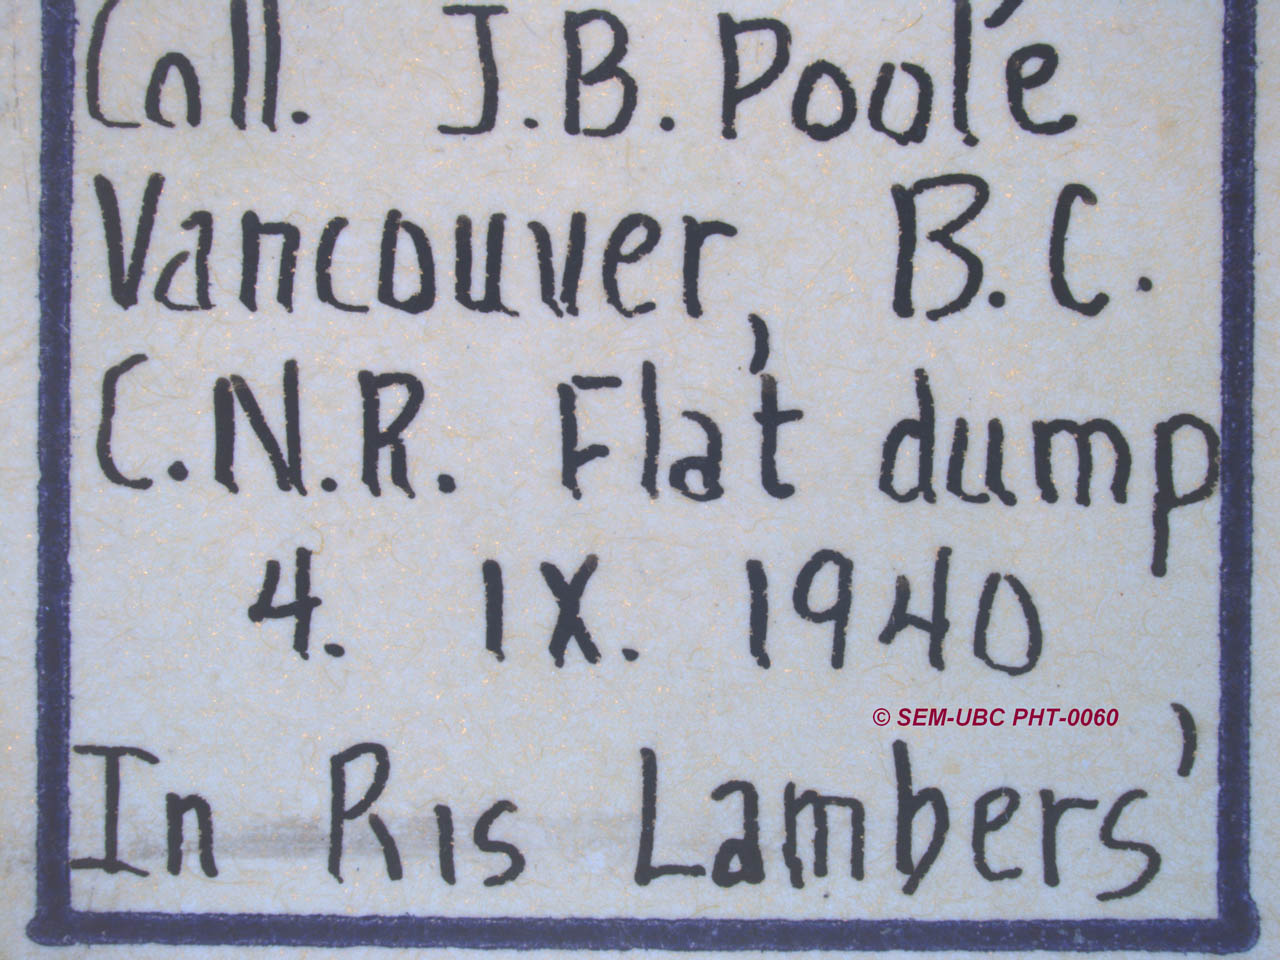 Coll. J.B. Poolé
Vancouver, B.C.
C.N.R. Flat dump
4. IX. 1940
© SEM-UBC PHT-0060
In Ris Lambers'